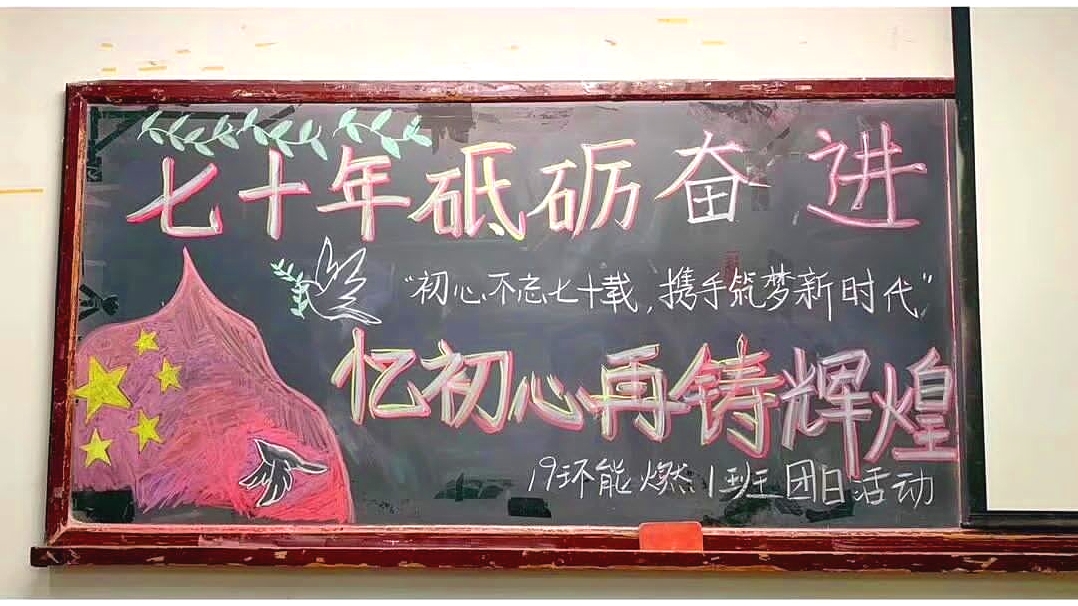 七十年砥砺奋进
“初心不忘七十载,携手筑梦新时代”
忆初心再铸辉煌
19环能燃1班团日活动